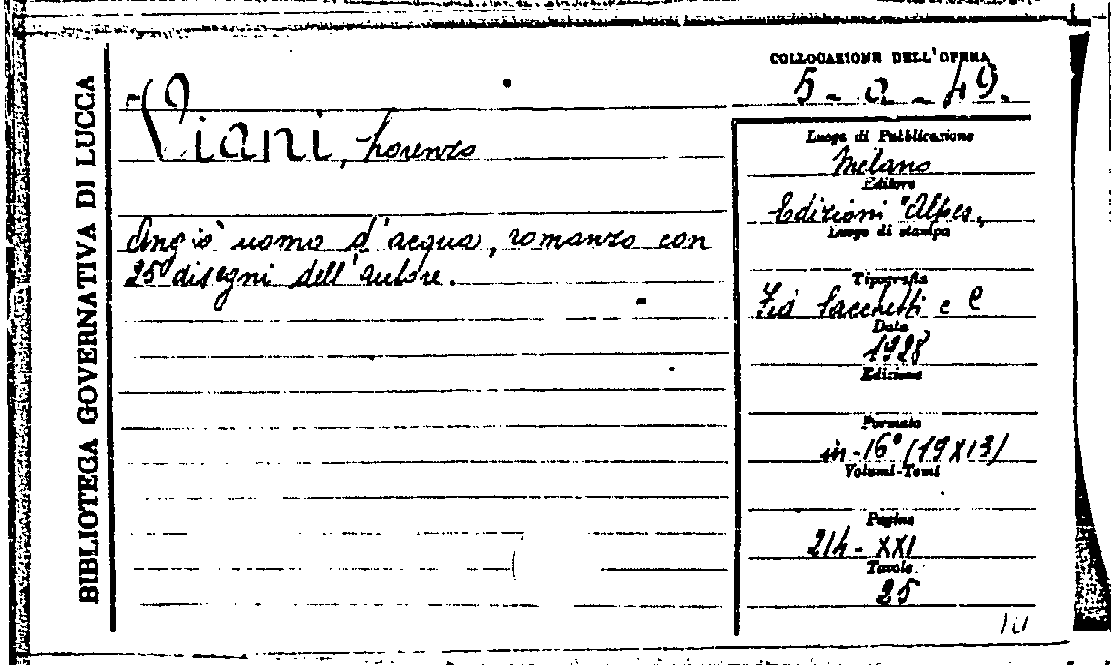 BIBLIOTEGA GOVERNATIVA DI LUCCA
COLLOCAZIONE DELL'OPERA
5-a-49.
Viani, Lorenzo
Angiò uomo d'acqua, romanzo con
25 disegni dell'autore.
Luogo di Pubblicazione
Milano
Editore
Edizioni "Alpes„
Luogo di stampa
Tipografia
Fid Sacchetti e C
Data
1928
Edizione
Formato
in-16° (19X13)
Volumi-Tomi
Pagine
214-XXI
Tavole
25